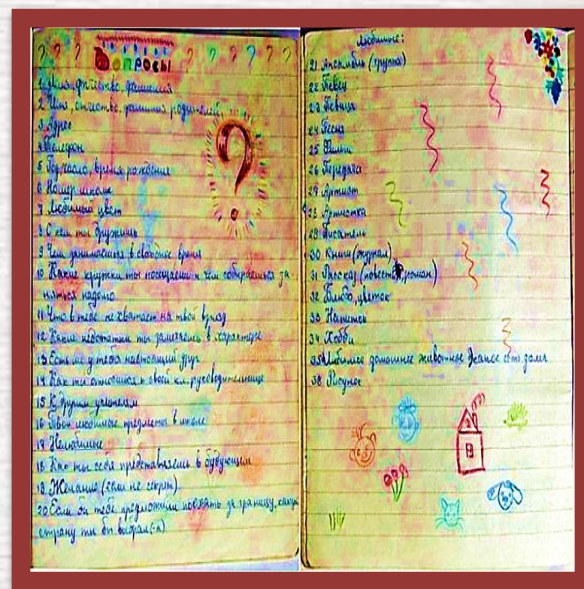 Вопросы
1 Имя, отчество, фамилия
2 Имя, отчество, фамилия родителей
3 Адрес
4 Телефон
5 Год, число, время рождения
6 Номер школы
7 Любимый цвет
8 С кем ты дружишь
9 Чем занимаешься в свободное время
10 Какие кружки ты посещаешь и чем собираешься за-
няться надолго
11 Что в тебе не хватает на твой взгляд
12 Какие недостатки ты замечаешь в характере
13 Есть ли у тебя настоящий друг
14 Как ты относишься к своей кл. руководительнице
15 К другим учителям
16 Твои любимые предметы в школе
17 Нелюбимые
18 Как ты себя представляешь в будующем
19 Желание (если не секрет)
20 Если бы тебе предложили поехать за границу, какую
страну ты бы выбрал (-а)
Любимые:
21 Ансамбль (группа)
22 Певец
23 Певица
24 Песня
25 Фильм
26 Передача
27 Артист
28 Артистка
29 Писатель
30 Книга (журнал)
31 Рассказ (повесть, роман)
32 Блюдо, цветок
33 Напиток
34 Хобби
35 Любимое домашнее животное Какое есть дома
36 Рисунок